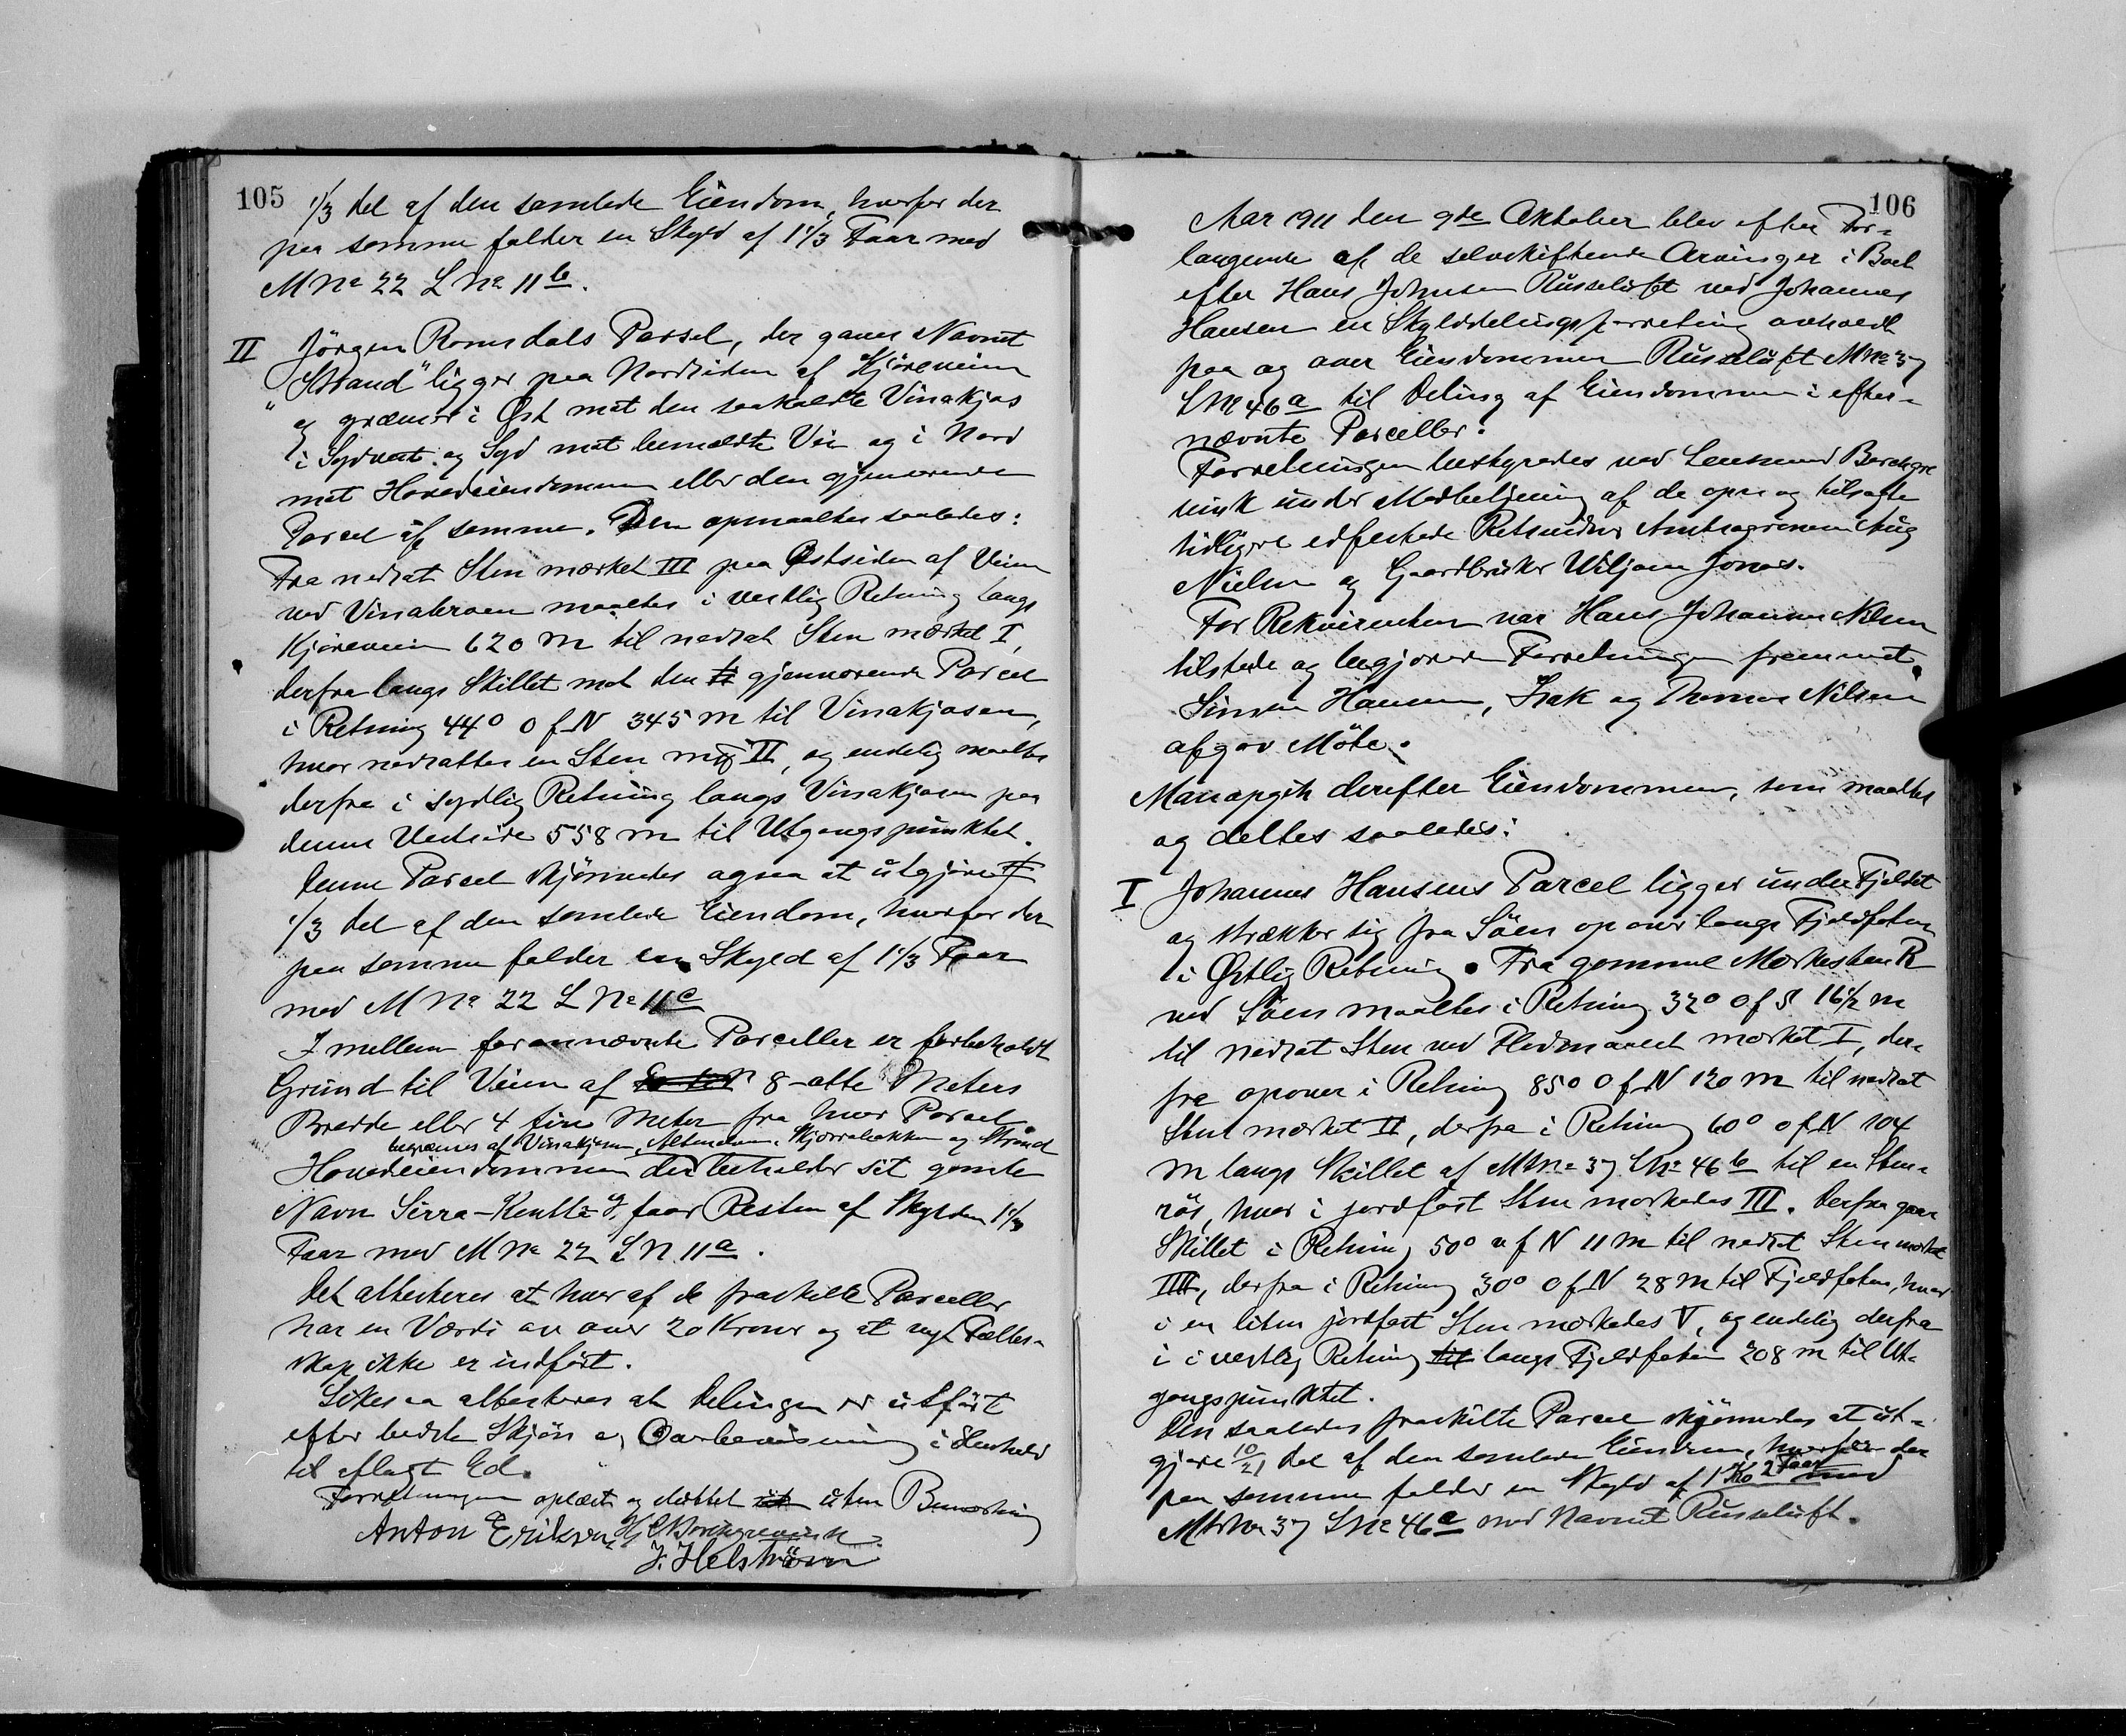 105
1/3 del af den samlede Eiendom, hvorfor der
paa samme falder en Skyld af 1 1/3 Faar med
M No 22 L No 11 b.
II Jörgen Romsdals Parsel, der gaves Navnet
"Strand" ligger paa Nordsiden af Kjøreveien
og grænser i Øst mot den saakaldte Vinakjos
i Sydvest og Syd mot bemældte Vei og i Nord
mot Hovedeiendommen eller den gjenværende
Parcel af samme. Den opmaaltes saaledes:
Fra nedsat Sten mærket III paa Østsiden af Veien
ved Vinabroen maaltes i vestlig Retning langs
Kjøreveien 620 m til nedsat Sten mærket I,
derfra langs Skillet mot den gjenværende Parcel
i Retning 44° O f N 345 m til Vinakjosen,
hvor nedsattes en Sten mrk II, og endelig maaltes
derfra i sydlig Retning langs Vinakjosen paa
dennes Vestside 558 m til Utgangspunktet.
Denne Parcel skjønnedes ogsaa at utgjøre
1/3 del af den samlede Eiendom, hvorfor der
paa samme falder en Skyld af 1 1/3 Faar
med M No 22 L No 11 c
I mellem forannævnte Parceller er forbeholdt
Grund til Veien af 8-otte Meters
Bredde eller 4 fire Meter fra hver Parcel
begrænses af Vinakjosen, Altenelven, Skjærrabakken og Strand
Hovedeiendommen der beholder sit gamle
Navn Sirra-Kentta I, faar Resten af Skylden 1 1/3
Faar med M No 22 L N 11 a.
Det attesteres at hver af de fraskilte Parceller
har en Værdi av over 20 Kroner og at nyt Fælles-
skap ikke er indført.
Likesaa attesteres at Delingen er utført
efter bedste Skjøn og Overbevisning i Henhold
til aflagt Ed.
Forretningen oplæst og sluttet uten Bemærkning
Anton Eriksen, Hj C Borchgrevink
J. Helström
106
Aar 1911 den 9de Oktober blev efter For-
langende af de selvskiftende Arvinger i Boet
efter Hans Johnsen Russeluft ved Johannes
Hansen en Skylddelingsforretning avholdt
paa og over Eiendommen Russeluft M No 37
L No 46 a til Deling af Eiendommen i efter-
nævnte Parceller.
Forretningen bestyredes ved Lensmand Borchgre
vink under Medbetjening af de opn og tilsagte
tidligere edfæstede Retsvidner Amtsagronom Aug
Nielsen og Gaardbruker Wiljam Jonas.
For Rekvirenten var Hans Johannes Nilsen
tilstede og begjærede Forretningen fremmet.
Simon Hansen, Isak og Thomas Nilsen
afgav Møte.
Man opgik derefter Eiendommen, som maaltes
og deltes saaledes:
I Johannes Hansens Parcel ligger under Fjeldet
og strækker sig fra Søen opover langs Fjeldfoten
i Østlig Retning. Fra gammel Merkesten R
ved Søen maaltes i Retning 32° O f S 16 1/2 m
til nedsat Sten ved Flodmaalet mærket I, der-
fra opover i Retning 85° O f N 120 m til nedsat
Sten mærket II, derfra i Retning 60° O f N 104
m langs Skillet af M No 37 L No 46 b til en Sten-
røs, hvor i jordfast Sten mærkedes III. Derfra gaar
Skillet i Retning 50° O f N 11 m til nedsat Sten mærket
IIII, derfra i Retning 30° O f N 28 m til Fjeldfoten, hvor
i en liten jordfast Sten mærkedes V, og endelig derfra
i i vestlig Retning til langs Fjeldfoten 208 m til Ut-
gangspunktet.
Den saaledes fraskilte Parcel skjønnedes at ut-
gjøre 10/21 del af den samlede Eiendom, hvorfor der
paa samme falder en Skyld af 1 Ko 2 Faar med
M No 37 L No 46 c med Navnet Russeluft.